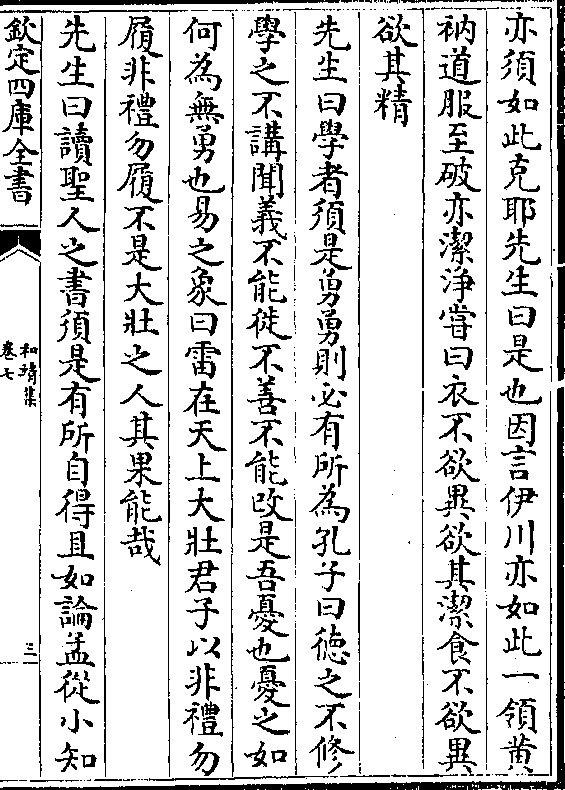 亦須如此克耶先生曰是也因言伊川亦如此一領黄
衲道服至破亦潔浄嘗曰衣不欲異欲其潔食不欲異
欲其精
先生曰學者須是勇勇則必有所為孔子曰徳之不修
學之不講聞義不能徙不善不能改是吾憂也憂之如
何為無勇也易之象曰雷在天上大壯君子以非禮勿
履非禮勿履不是大壯之人其果能哉
先生曰讀聖人之書須是有所自得且如論孟從小知
欽定四庫全書
和靖集
卷七
三